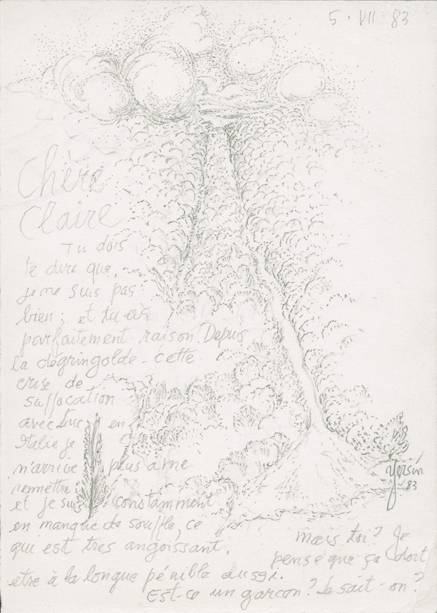 5 · VII 83
Chère
Claire
Tu dois
te dire que,
je ne suis pas
bien; et tu as
parfaitement raison. Depuis
la dégringolde - cette
crise de
suffocation
avec Luc en
Italie je
n'arrive plus à me
remettre
et je suis constamment
en manque de souffle, ce
qui est très angoissant.
Mais toi? Je
pense que ça doit
être à la longue pénible aussi.
Est-ce un garçon? Le sait-on?
Yersin
83